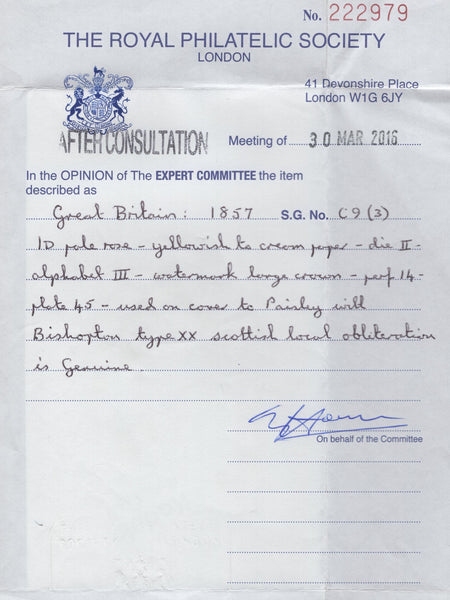 No. 222979
THE ROYAL PHILATELIC SOCIETY
LONDON
41 Devonshire Place
London W1G 6JY
AFTER CONSULTATION
Meeting of 30 MAR 2016
In the OPINION of The EXPERT COMMITTEE the item
described as
Great Britain: 1857 S.G. No. C9(3)
1D pale rose - yellowish to cream paper - die II -
alphabet III - watermark large crown - perf 14 -
plate 45 - used on cover to Paisley with
Bishopton type XX scottish local obliteration
is Genuine.
On behalf of the Committee